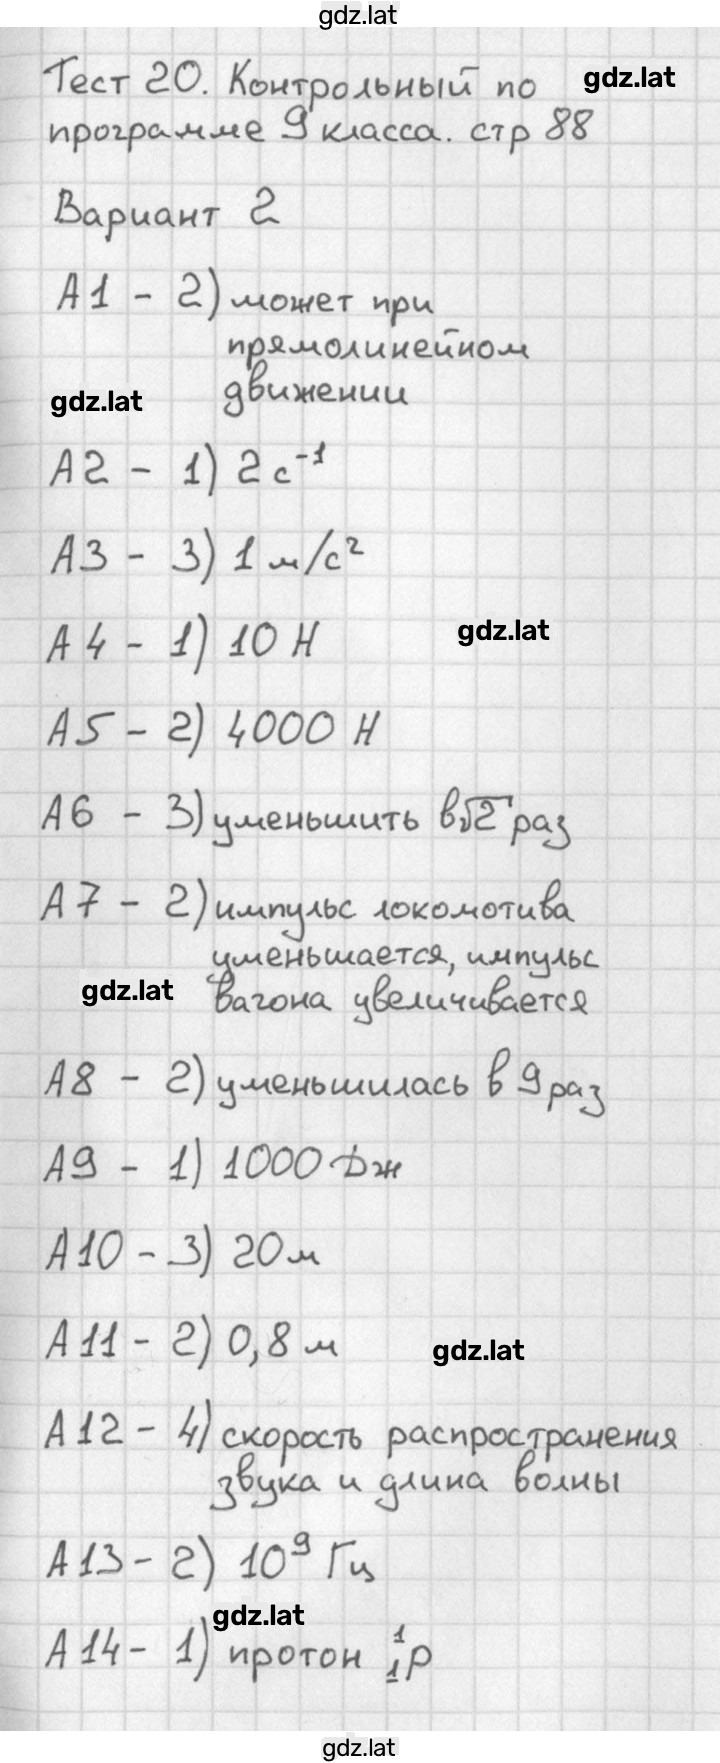 gdz.lat
Тест 20. Контрольный по gdz.lat
программе 9 класса. стр 88
Вариант 2
А1 - 2) может при
прямолинейном
gdz.lat движении
А2 - 1) 2 с⁻¹
А3 - 3) 1 м/с²
А4 - 1) 10 Н gdz.lat
А5 - 2) 4000 Н
А6 - 3) уменьшить в √2 раз
А7 - 2) импульс локомотива
уменьшается, импульс
gdz.lat вагона увеличивается
А8 - 2) уменьшилась в 9 раз
А9 - 1) 1000 Дж
А10 - 3) 20 м
А11 - 2) 0,8 м gdz.lat
А12 - 4) скорость распространения
звука и длина волны
А13 - 2) 10⁹ Гц
gdz.lat
А14 - 1) протон ¹₁p
gdz.lat